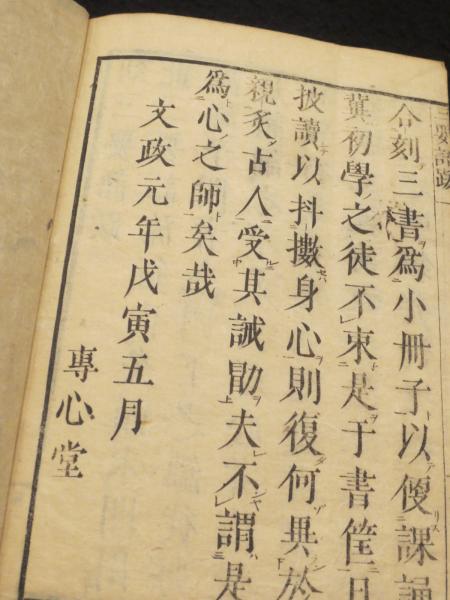 今刻三書爲小冊子以便課誦
冀初學之徒不束是于書筐日
披讀以抖擻身心則復何異於
親炙古人受其誡勖夫不謂是
爲心之師矣哉
文政元年戊寅五月
專心堂